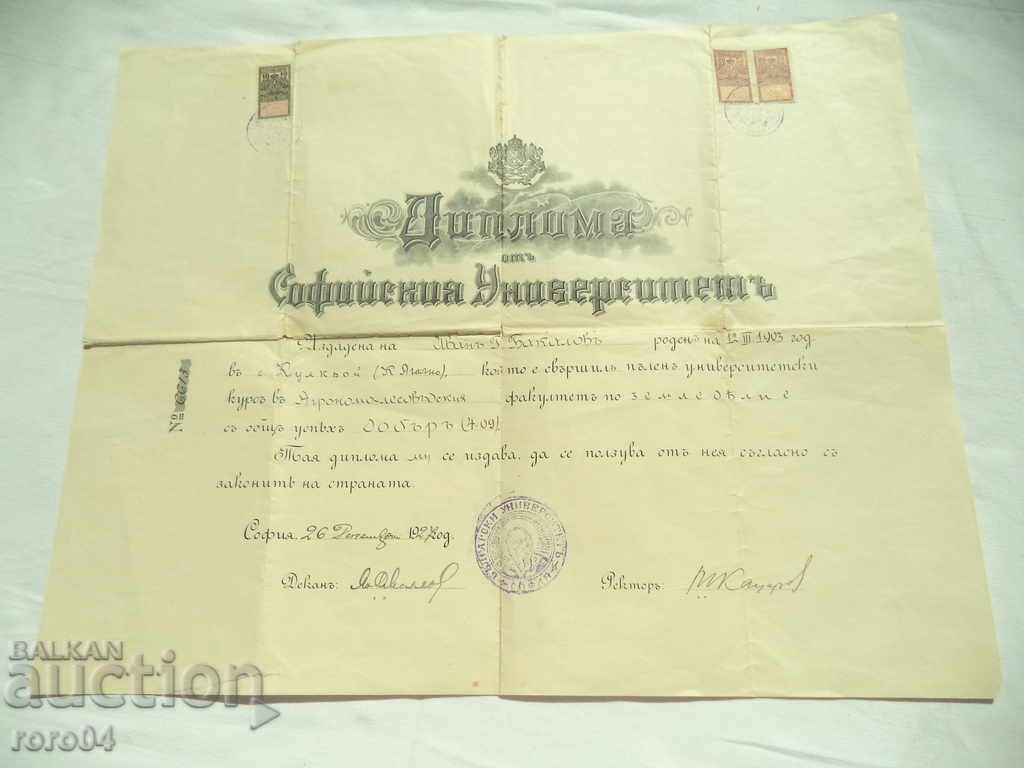 Диплома
отъ
Софийския Университетъ
Издадена на Иванъ Г Бакаловъ роденъ на 12 III 1903 год.
въ с. Кулкьой (К. Ягачно), който е свършилъ пъленъ университетски
курсъ въ Агрономолесовъдския факултетъ по земледѣлие
съ общъ успѣхъ Добъръ (4.09).
Тая диплома му се издава, да се ползува отъ нея съгласно съ
законитѣ на страната.
София, 26 Декемврий 1927 год.
Деканъ:
Ректоръ:
№
БЪЛГАРСКИ УНИВЕРСИТЕТЪ СОФИЯ
BALKAN
auction
roro04